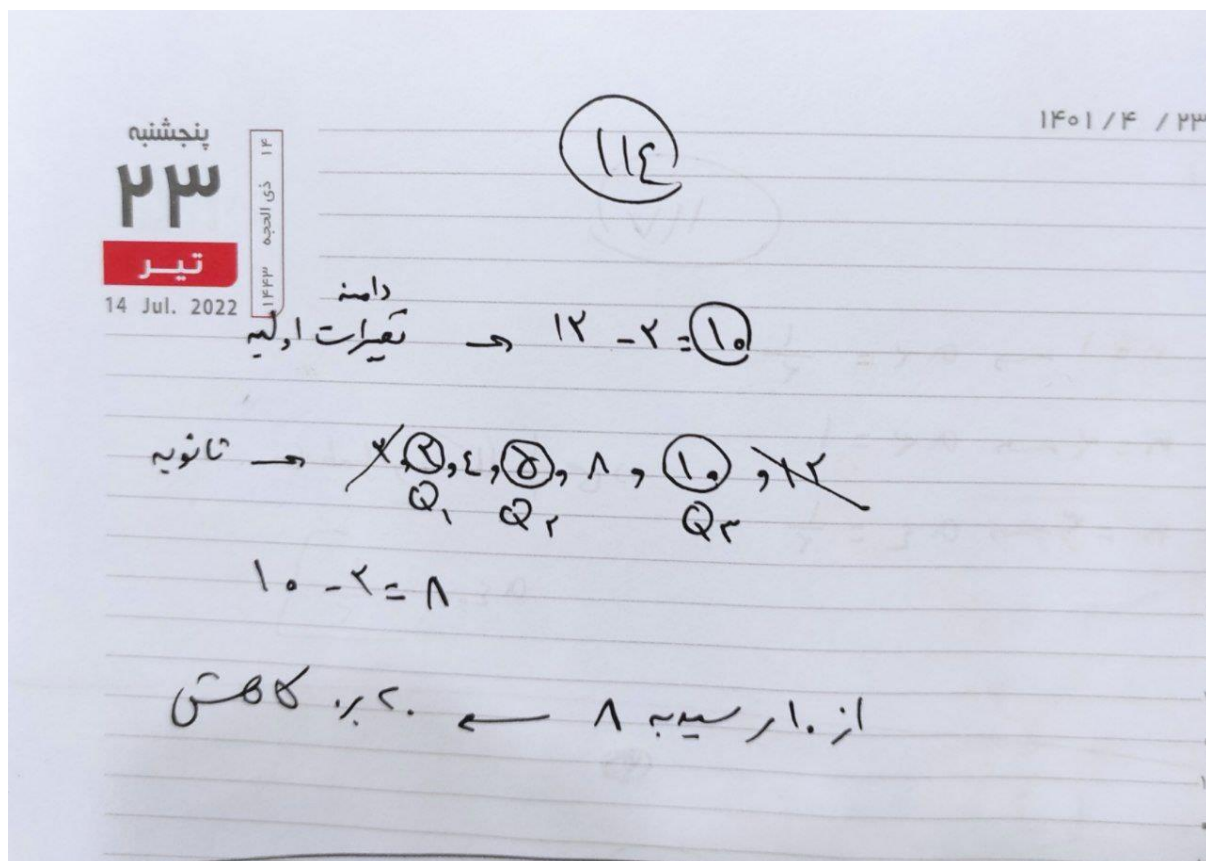 ۱۴۰۱ / ۴ / ۲۳
پنجشنبه
۲۳
تیر
14 Jul. 2022
۱۴ ذی الحجه ۱۴۴۳
۱۱۴
دامنه
تغیرات اولیه → ۱۲ - ۲ = ۱۰
ثانویه → ۲, ۲, ۴, ۵, ۸, ۱۰, ۱۲
Q۱ Q۲ Q۳
۱۰ - ۲ = ۸
از ۱۰ رسید به ۸ ← ۲۰٪ کاهش